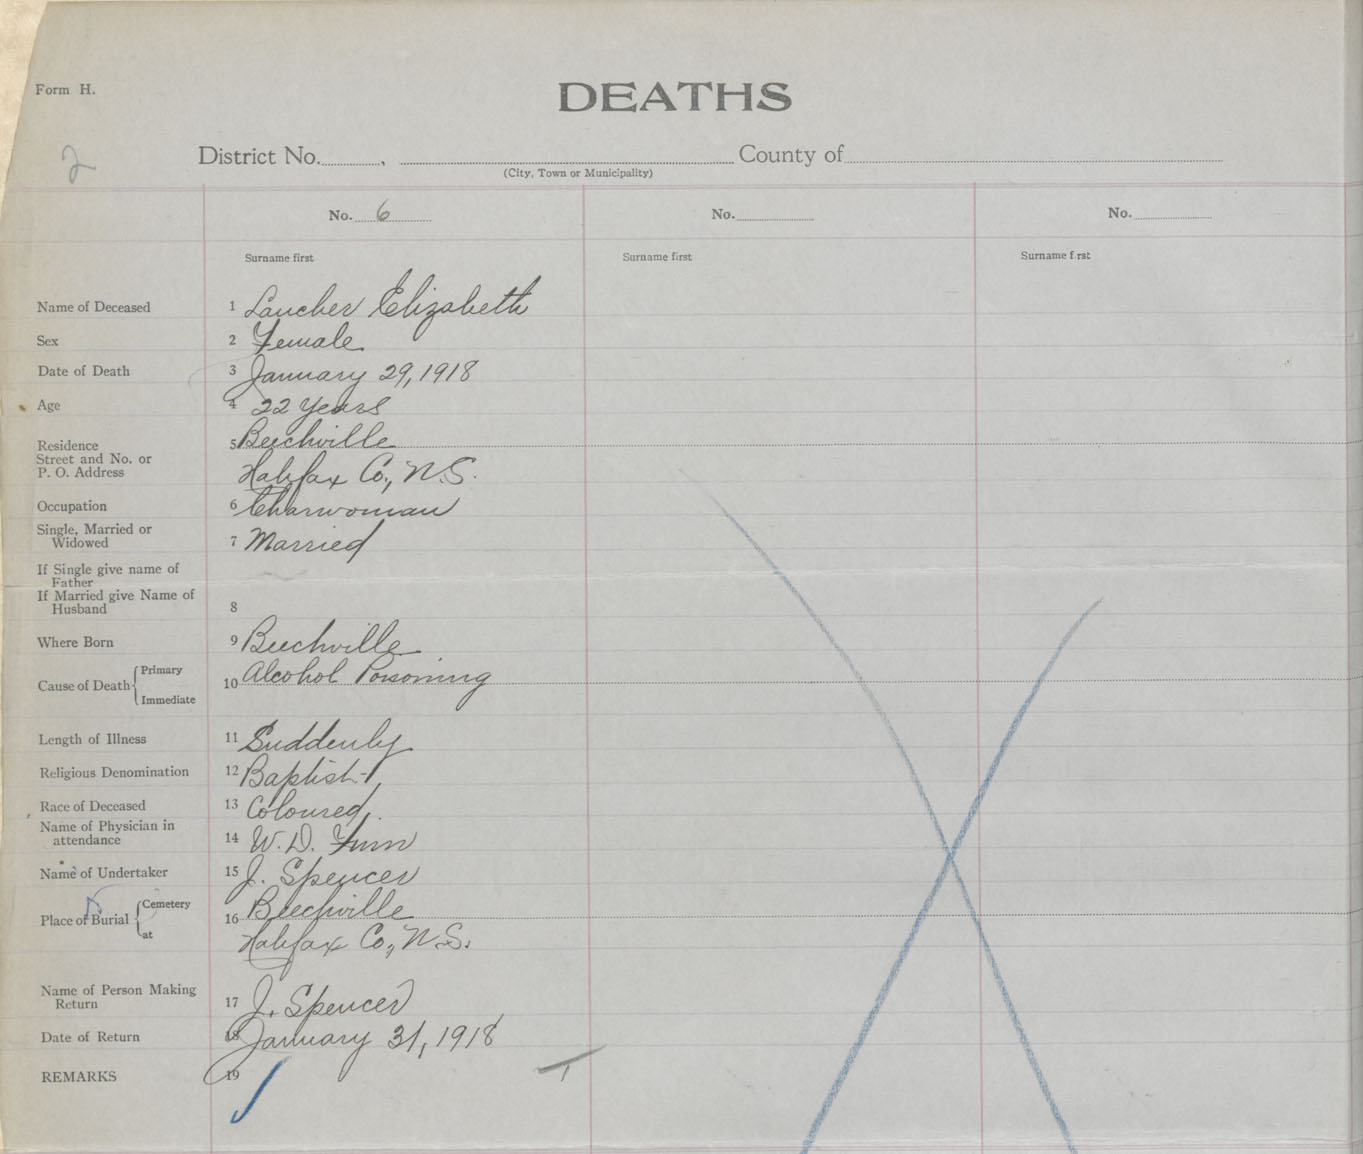 Form H.
DEATHS
2
District No. , County of
(City, Town or Municipality)
No. 6 No. No.
Surname first Surname first Surname first
Name of Deceased 1 Laucher Elizabeth
Sex 2 Female
Date of Death 3 January 29, 1918
Age 4 22 years
Residence 5 Beechville
Street and No. or
P. O. Address Halifax Co., N.S.
Occupation 6 Charwoman
Single, Married or
Widowed 7 Married
If Single give name of
Father
If Married give Name of
Husband 8
Where Born 9 Beechville
Cause of Death Primary 10 Alcohol Poisoning
Immediate
Length of Illness 11 Suddenly
Religious Denomination 12 Baptist
Race of Deceased 13 Coloured.
Name of Physician in
attendance 14 W. D. Finn
Name of Undertaker 15 J. Spencer
Place of Burial Cemetery 16 Beechville
at Halifax Co., N.S.
Name of Person Making
Return 17 J. Spencer
Date of Return 18 January 31, 1918
REMARKS 19